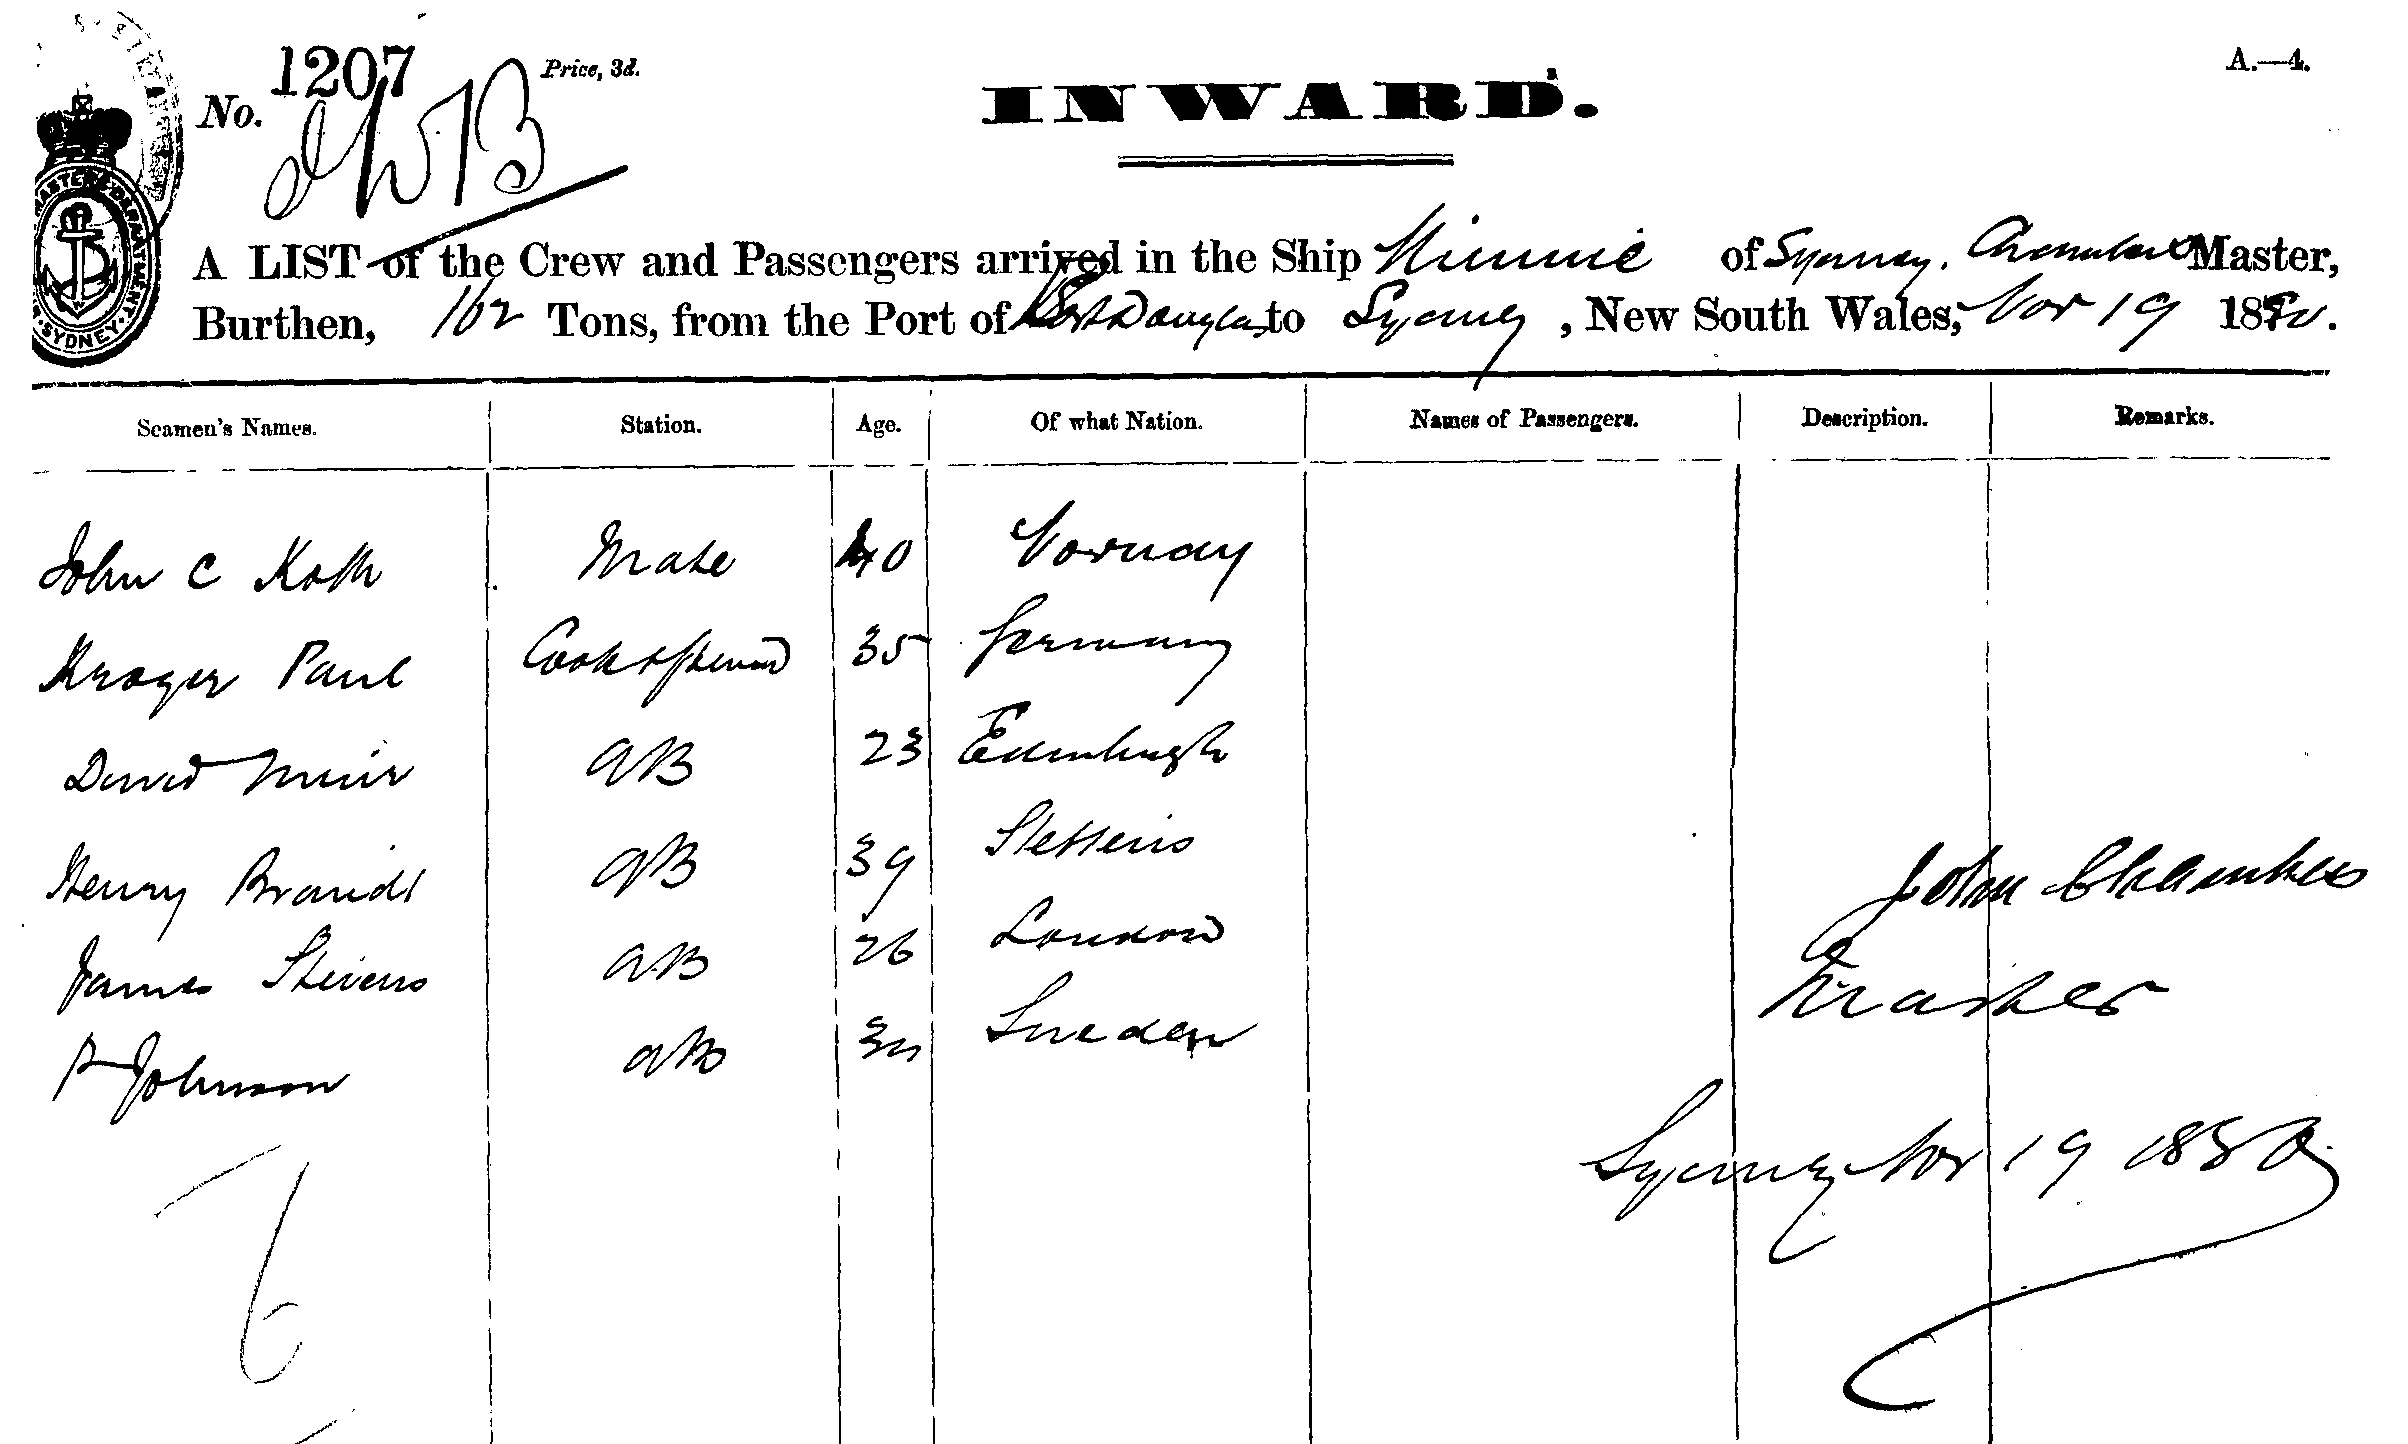 No. 1207 Price, 3d. INWARD. A.—4.
A LIST of the Crew and Passengers arrived in the Ship Minnie of Sydney. Chambers Master,
Burthen, 162 Tons, from the Port of Port Douglas to Sydney, New South Wales, Nov 19 1880.
Seamen's Names. Station. Age. Of what Nation. Names of Passengers. Description. Remarks.
John C Koth Mate 40 Norway
Kroger Paul Cook & Steward 35 Germany
David Muir AB 23 Edinburgh
Henry Brandt AB 39 Stettin
James Stevens AB 26 London
P Johnson AB Sweden
John Chambers
Master
Sydney Nov 19 1880
6